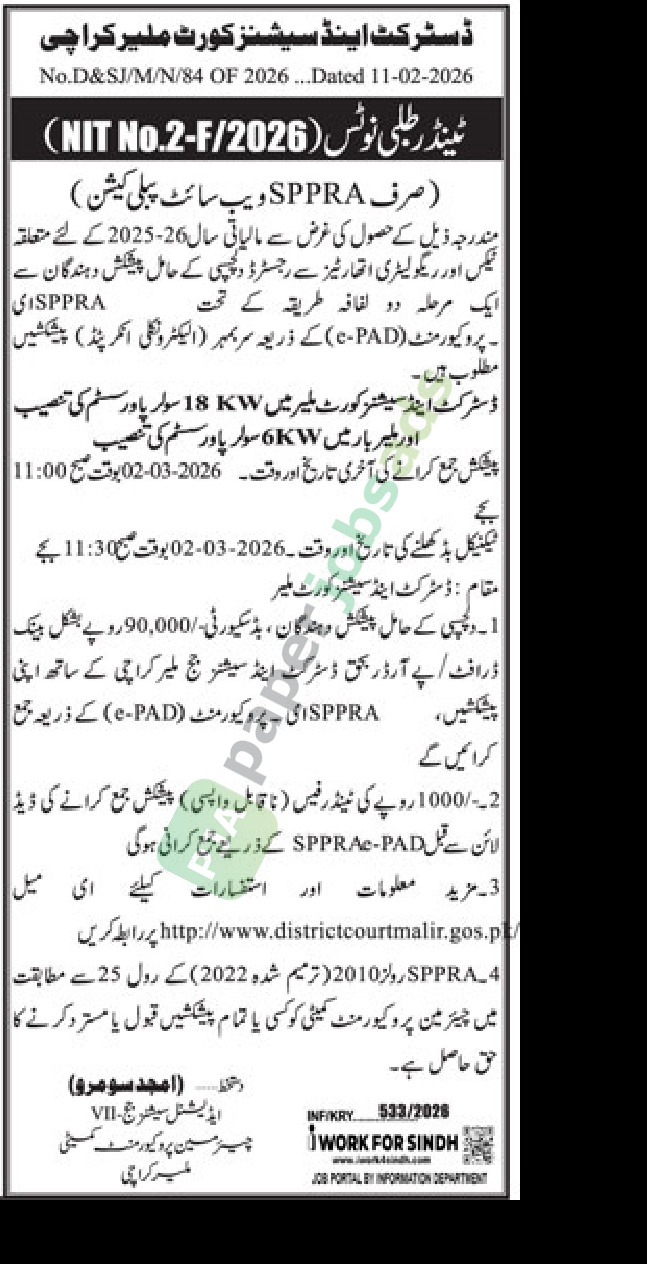 ڈسٹرکٹ اینڈ سیشنز کورٹ ملیر کراچی
No.D&SJ/M/N/84 OF 2026 ...Dated 11-02-2026
ٹینڈر طلبی نوٹس (NIT No.2-F/2026)
(صرف SPPRA ویب سائٹ پبلی کیشن)
مندرجہ ذیل کے حصول کی غرض سے مالیاتی سال 2025-26 کے لئے متعلقہ
ٹیکس اور ریگولیٹری اتھارٹیز سے رجسٹرڈ دلچسپی کے حامل پیشکش دہندگان سے
ایک مرحلہ دو لفافہ طریقہ کے تحت SPPRA ای
۔پروکیورمنٹ (e-PAD) کے ذریعہ سربمہر (الیکٹرونکلی انکرپٹڈ) پیشکشیں
مطلوب ہیں۔
ڈسٹرکٹ اینڈ سیشنز کورٹ ملیر میں 18 KW سولر پاور سسٹم کی تنصیب
اور ملیر بار میں 6KW سولر پاور سسٹم کی تنصیب
پیشکش جمع کرانے کی آخری تاریخ اور وقت۔ 02-03-2026 بوقت صبح 11:00
بجے
ٹیکنیکل بڈ کھلنے کی تاریخ اور وقت۔ 02-03-2026 بوقت صبح 11:30 بجے
مقام : ڈسٹرکٹ اینڈ سیشنز کورٹ ملیر
1۔دلچسپی کے حامل پیشکش دہندگان ، بڈ سکیورٹی -/90,000 روپے بشکل بینک
ڈرافٹ/پے آرڈر بحق ڈسٹرکٹ اینڈ سیشنز جج ملیر کراچی کے ساتھ اپنی
پیشکشیں، SPPRA ای۔پروکیورمنٹ (e-PAD) کے ذریعہ جمع
کرائیں گے
2۔-/1000 روپے کی ٹینڈر فیس (ناقابل واپسی) پیشکش جمع کرانے کی ڈیڈ
لائن سے قبل SPPRAe-PAD کے ذریعے جمع کرانی ہوگی
3۔مزید معلومات اور استفسارات کیلئے ای میل
http://www.districtcourtmalir.gos.pk/ پر رابطہ کریں
4۔SPPRA رولز 2010 (ترمیم شدہ 2022) کے رول 25 سے مطابقت
میں چیئرمین پروکیورمنٹ کمیٹی کو کسی یا تمام پیشکشیں قبول یا مسترد کرنے کا
حق حاصل ہے۔
دستخط..... (امجد سومرو)
ایڈیشنل سیشنز جج-VII
چیئرمین پروکیورمنٹ کمیٹی
ملیر کراچی
INF/KRY 533/2026
iWORK FOR SINDH
www.iwork4sindh.com
JOB PORTAL BY INFORMATION DEPARTMENT
PJA paperjobsads